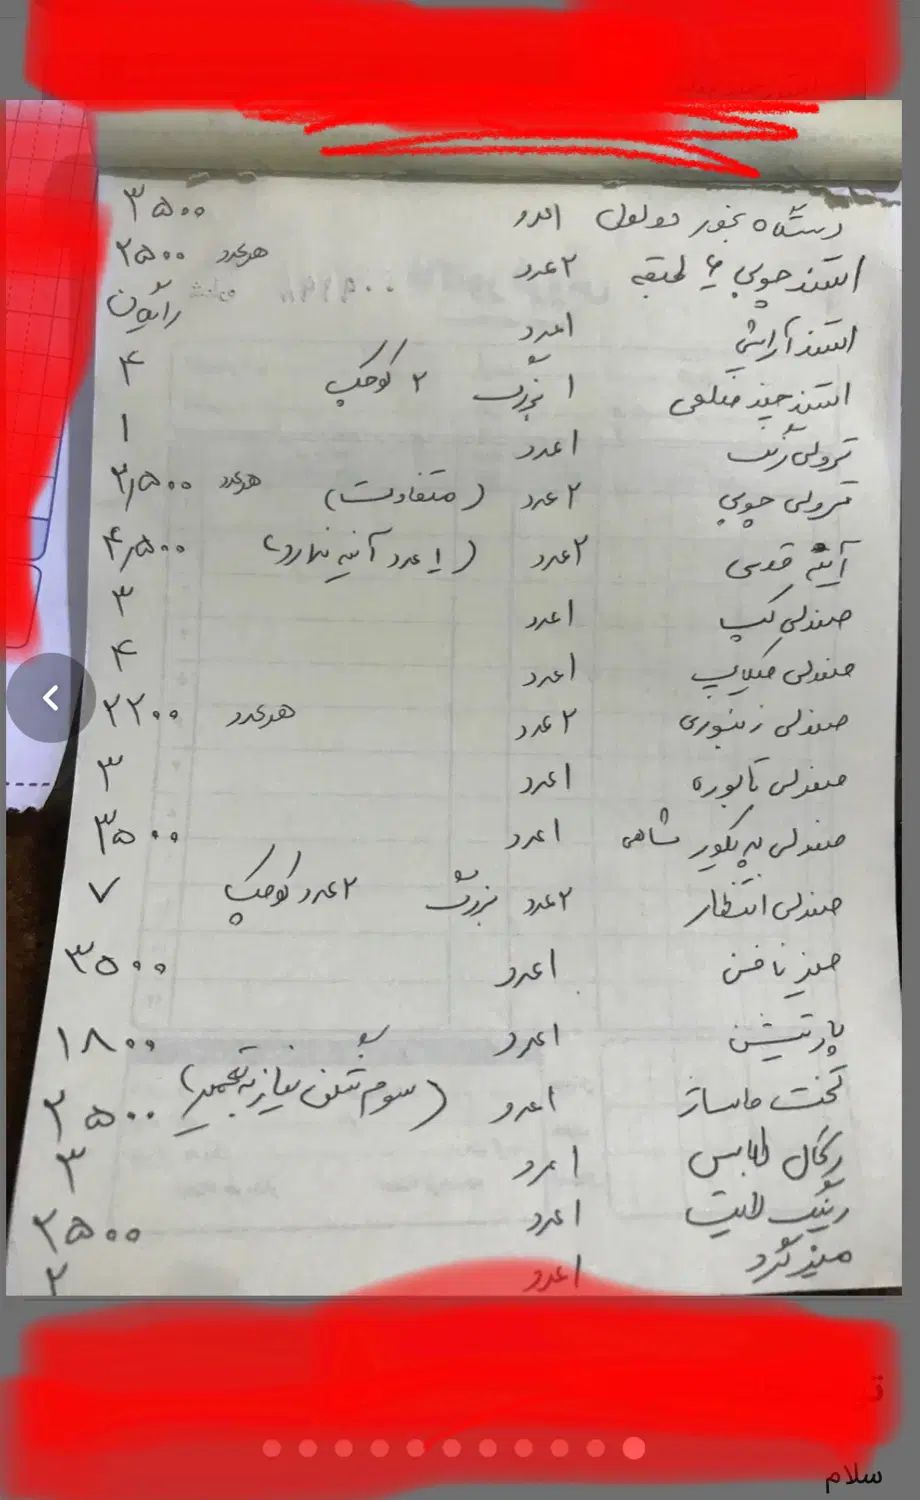 دستگاه بخور دولول ۱عدد ۳۵۰۰
استند چوبی ۶ طبقه ۲عدد هرعدد ۲۵۰۰
استند آرایشی ۱عدد رایگان
استند چند ضلعی ۱ بزرگ ۲ کوچک ۴
ترولی رنگ ۱عدد ۱
ترولی چوبی ۲عدد (متفاوت) هرعدد ۲٫۵۰۰
آینه قدی ۲عدد (۱عدد آینه ندارد) ۴٫۵۰۰
صندلی کپ ۱عدد ۳
صندلی میکاپ ۱عدد ۴
صندلی زنبوری ۲عدد هرعدد ۲۲۰۰
صندلی تابوره ۱عدد ۳
صندلی پدیکور شاهی ۱عدد ۳۵۰۰
صندلی انتظار ۲عدد بزرگ ۲عدد کوچک ۷
میز ناخن ۱عدد ۳۵۰۰
پارتیشن ۱عدد ۱۸۰۰
تخت ماساژ ۱عدد (نیاز به تعمیر) ۲۵۰۰
رگال لباس ۱عدد ۳
رینگ لایت ۱عدد ۲۵۰۰
میز گرد ۱عدد ۲
سلام